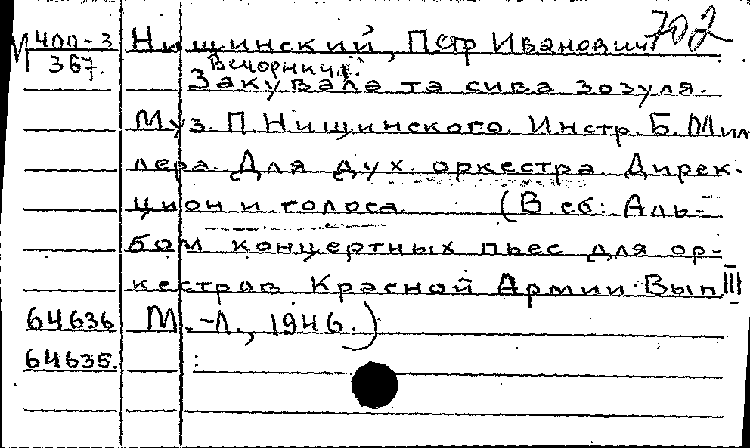 М 400-3 Нищинский, Петр Иванович 702
367. Вечорниці:
Закувала та сива зозуля.
Муз. П. Нищинского. Инстр. Б. Мил
лера. Для дух. оркестра. Дирек-
цион и голоса (В сб: Аль-
бом концертных пьес для ор-
кестров Красной Армии. Вып III
64636 М.-Л., 1946.)
64635.